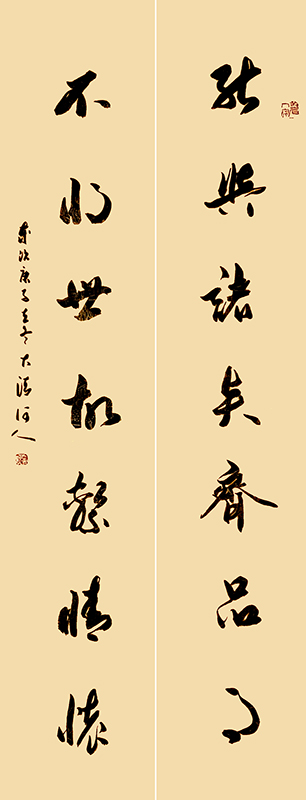 能與諸賢齊品目
不將世故繫情懷
歲次庚子立冬大清河人